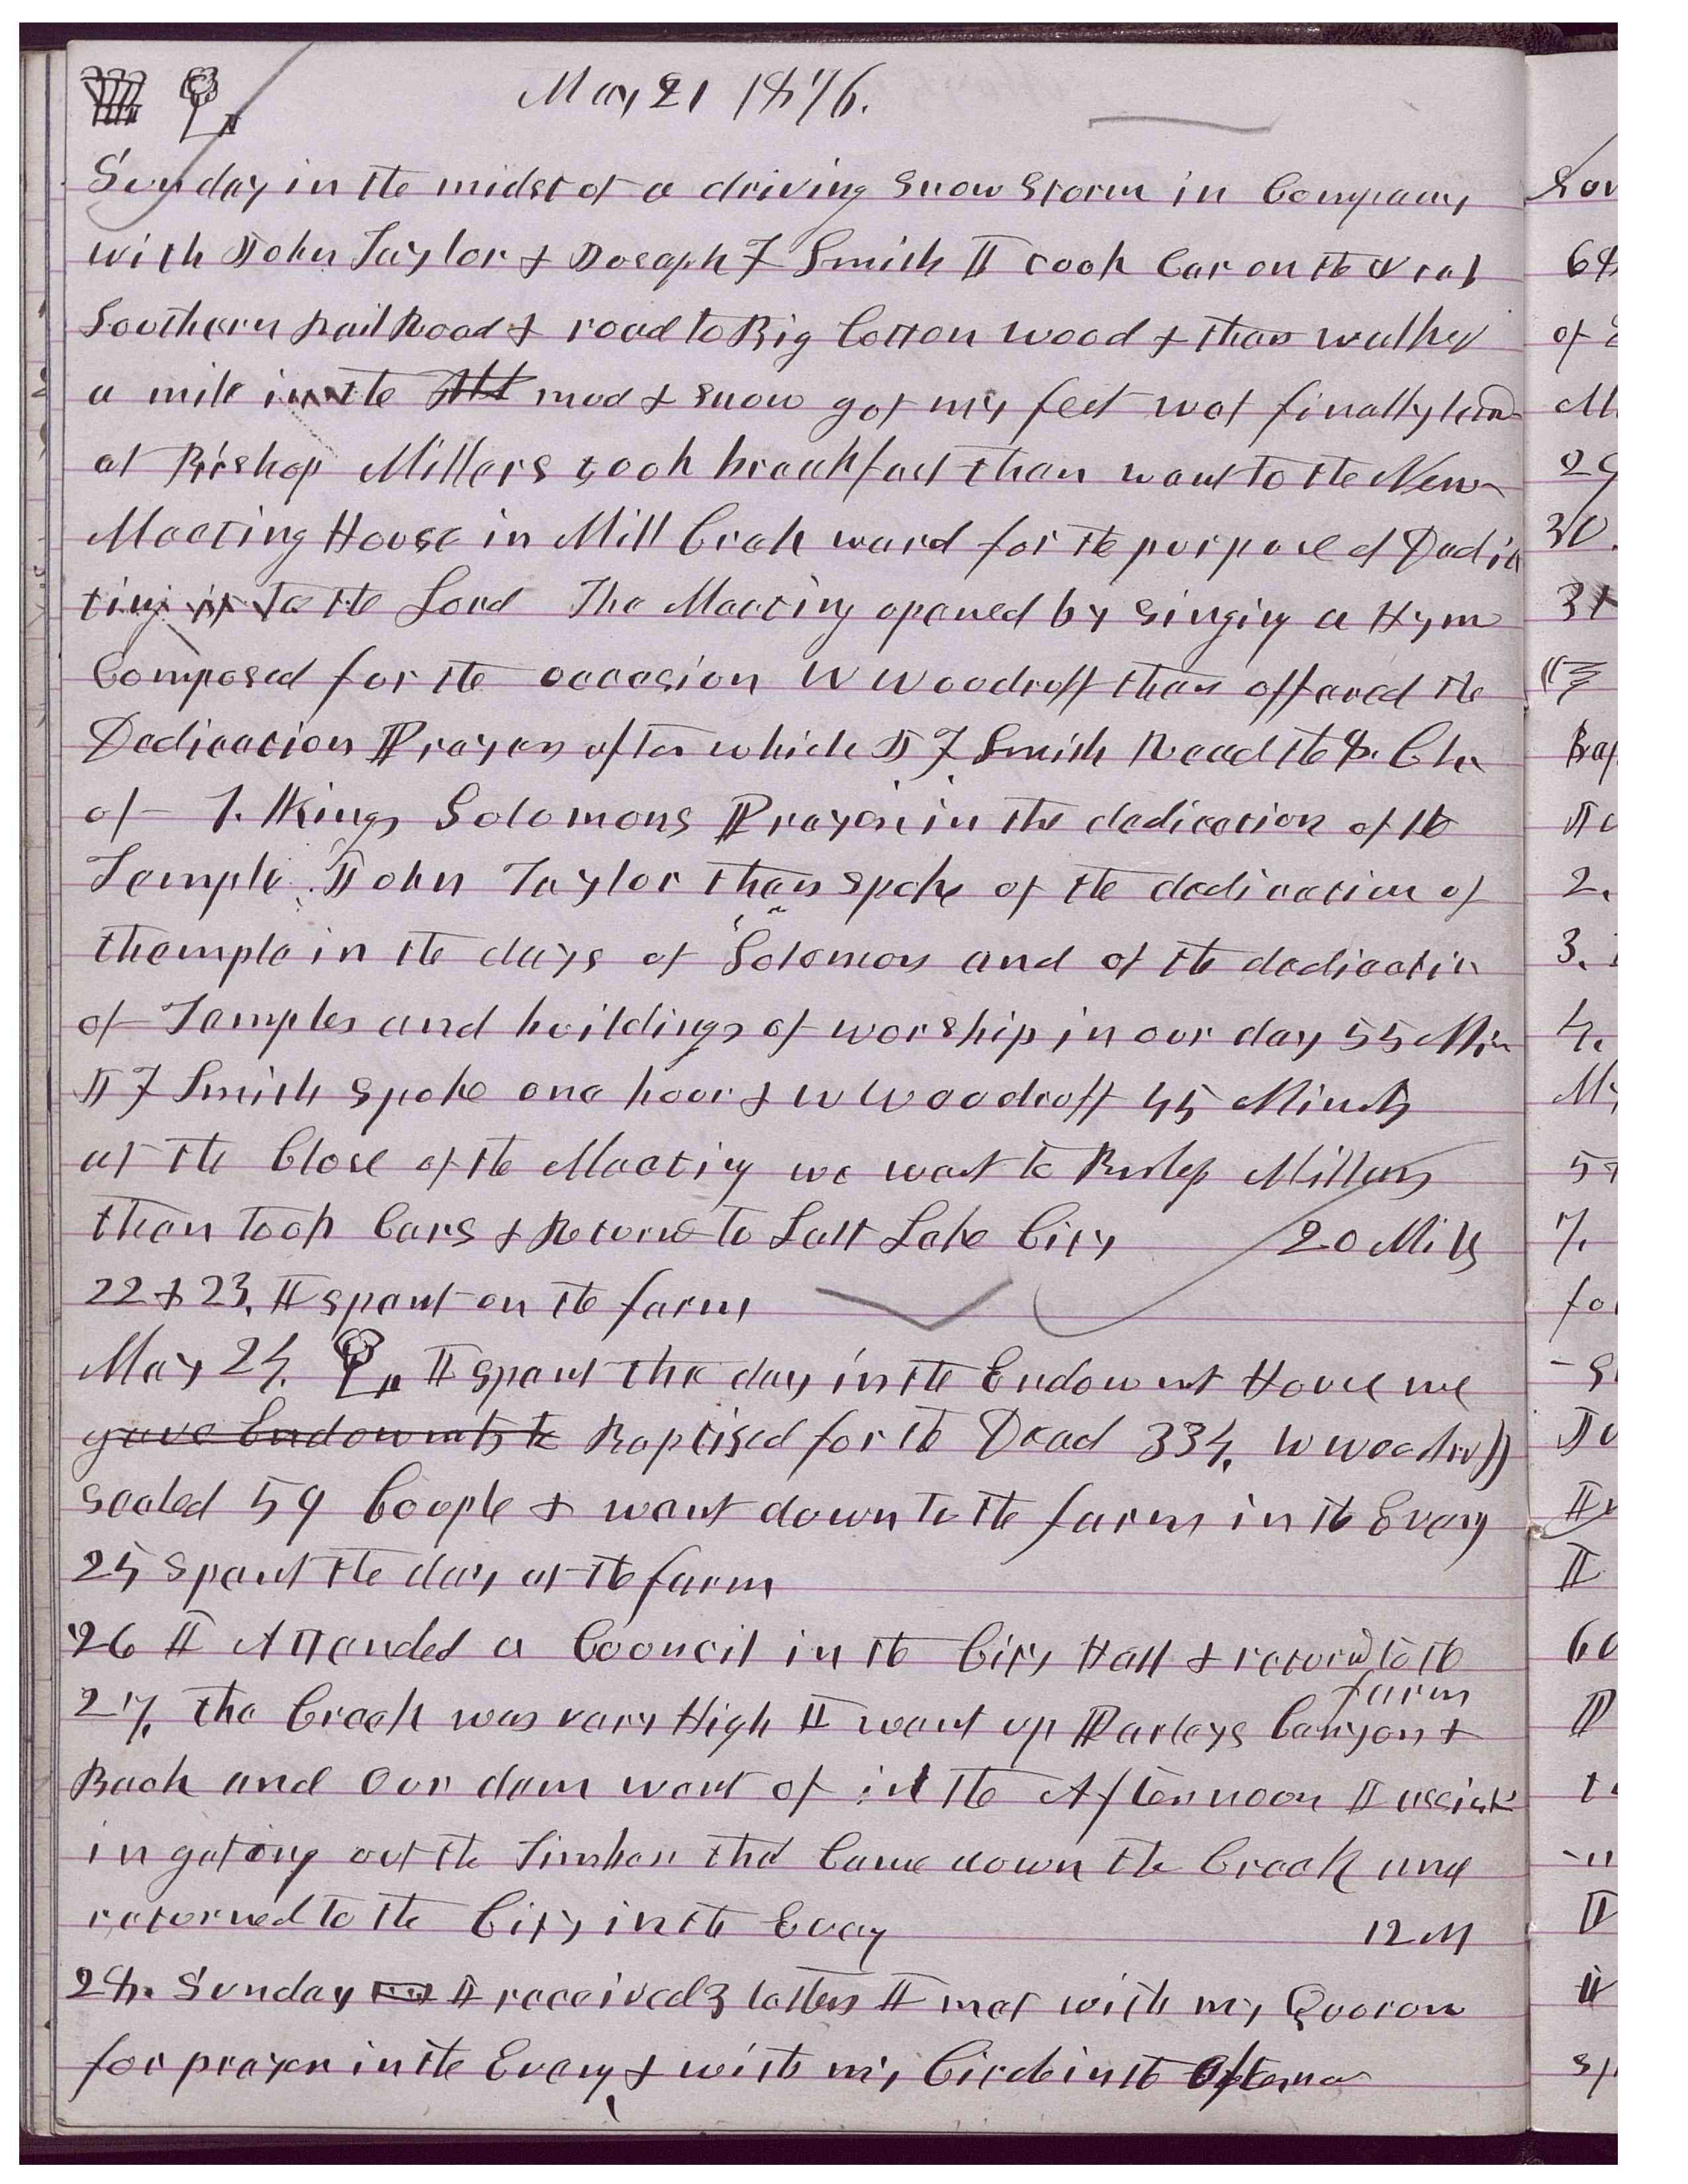 May 21 1876.
Sunday in the midst of a driving snow storm in Company
with John Taylor & Joseph F Smith I took Car on the Utah
Southern Rail Road & road to Big Cotton wood & then walked
a mile in the mud & snow got my feet wet finally
at Bishop Millers took breakfast then went to the New
Meeting House in Mill Creek ward for the purpose of Dedica
ting it to the Lord The Meeting opened by singing a Hym
Composed for the occasion W Woodruff then offered the
Dedication Prayer after which J F Smith Read the 8. Chr
of 1. Kings Solomons Prayer in the dedication of the
Temple. John Taylor then spoke of the dedication of
themple in the days of Solomon and of the dedication
of Temples and buildings of worship in our day 55 Min
J F Smith spoke one hour & W Woodruff 45 Minuts
at the Close of the Meeting we went to Bishop Millers
then took Cars & Returned to Salt Lake City 20 Miles
22 & 23. I spent on the farm
May 24. I spent the day in the Endowment House we
gave Endowments to Baptised for the Dead 334. W Woodruff
sealed 59 Couple & went down to the farm in the Eveng
25 spent the day at the farm
26 I Attended a Council in the City Hall & returnd to the
farm
27. the Creek was very High I went up Parleys Canyon &
Back and Our dam went of in the Afternoon I assisted
in geting out the Timber that Came down the Creek and
returned to the City in the Eveng 12 M
28. Sunday I received 3 letters I met with my Quorom
for prayer in the Eveng & with my Circle in the Afternoon